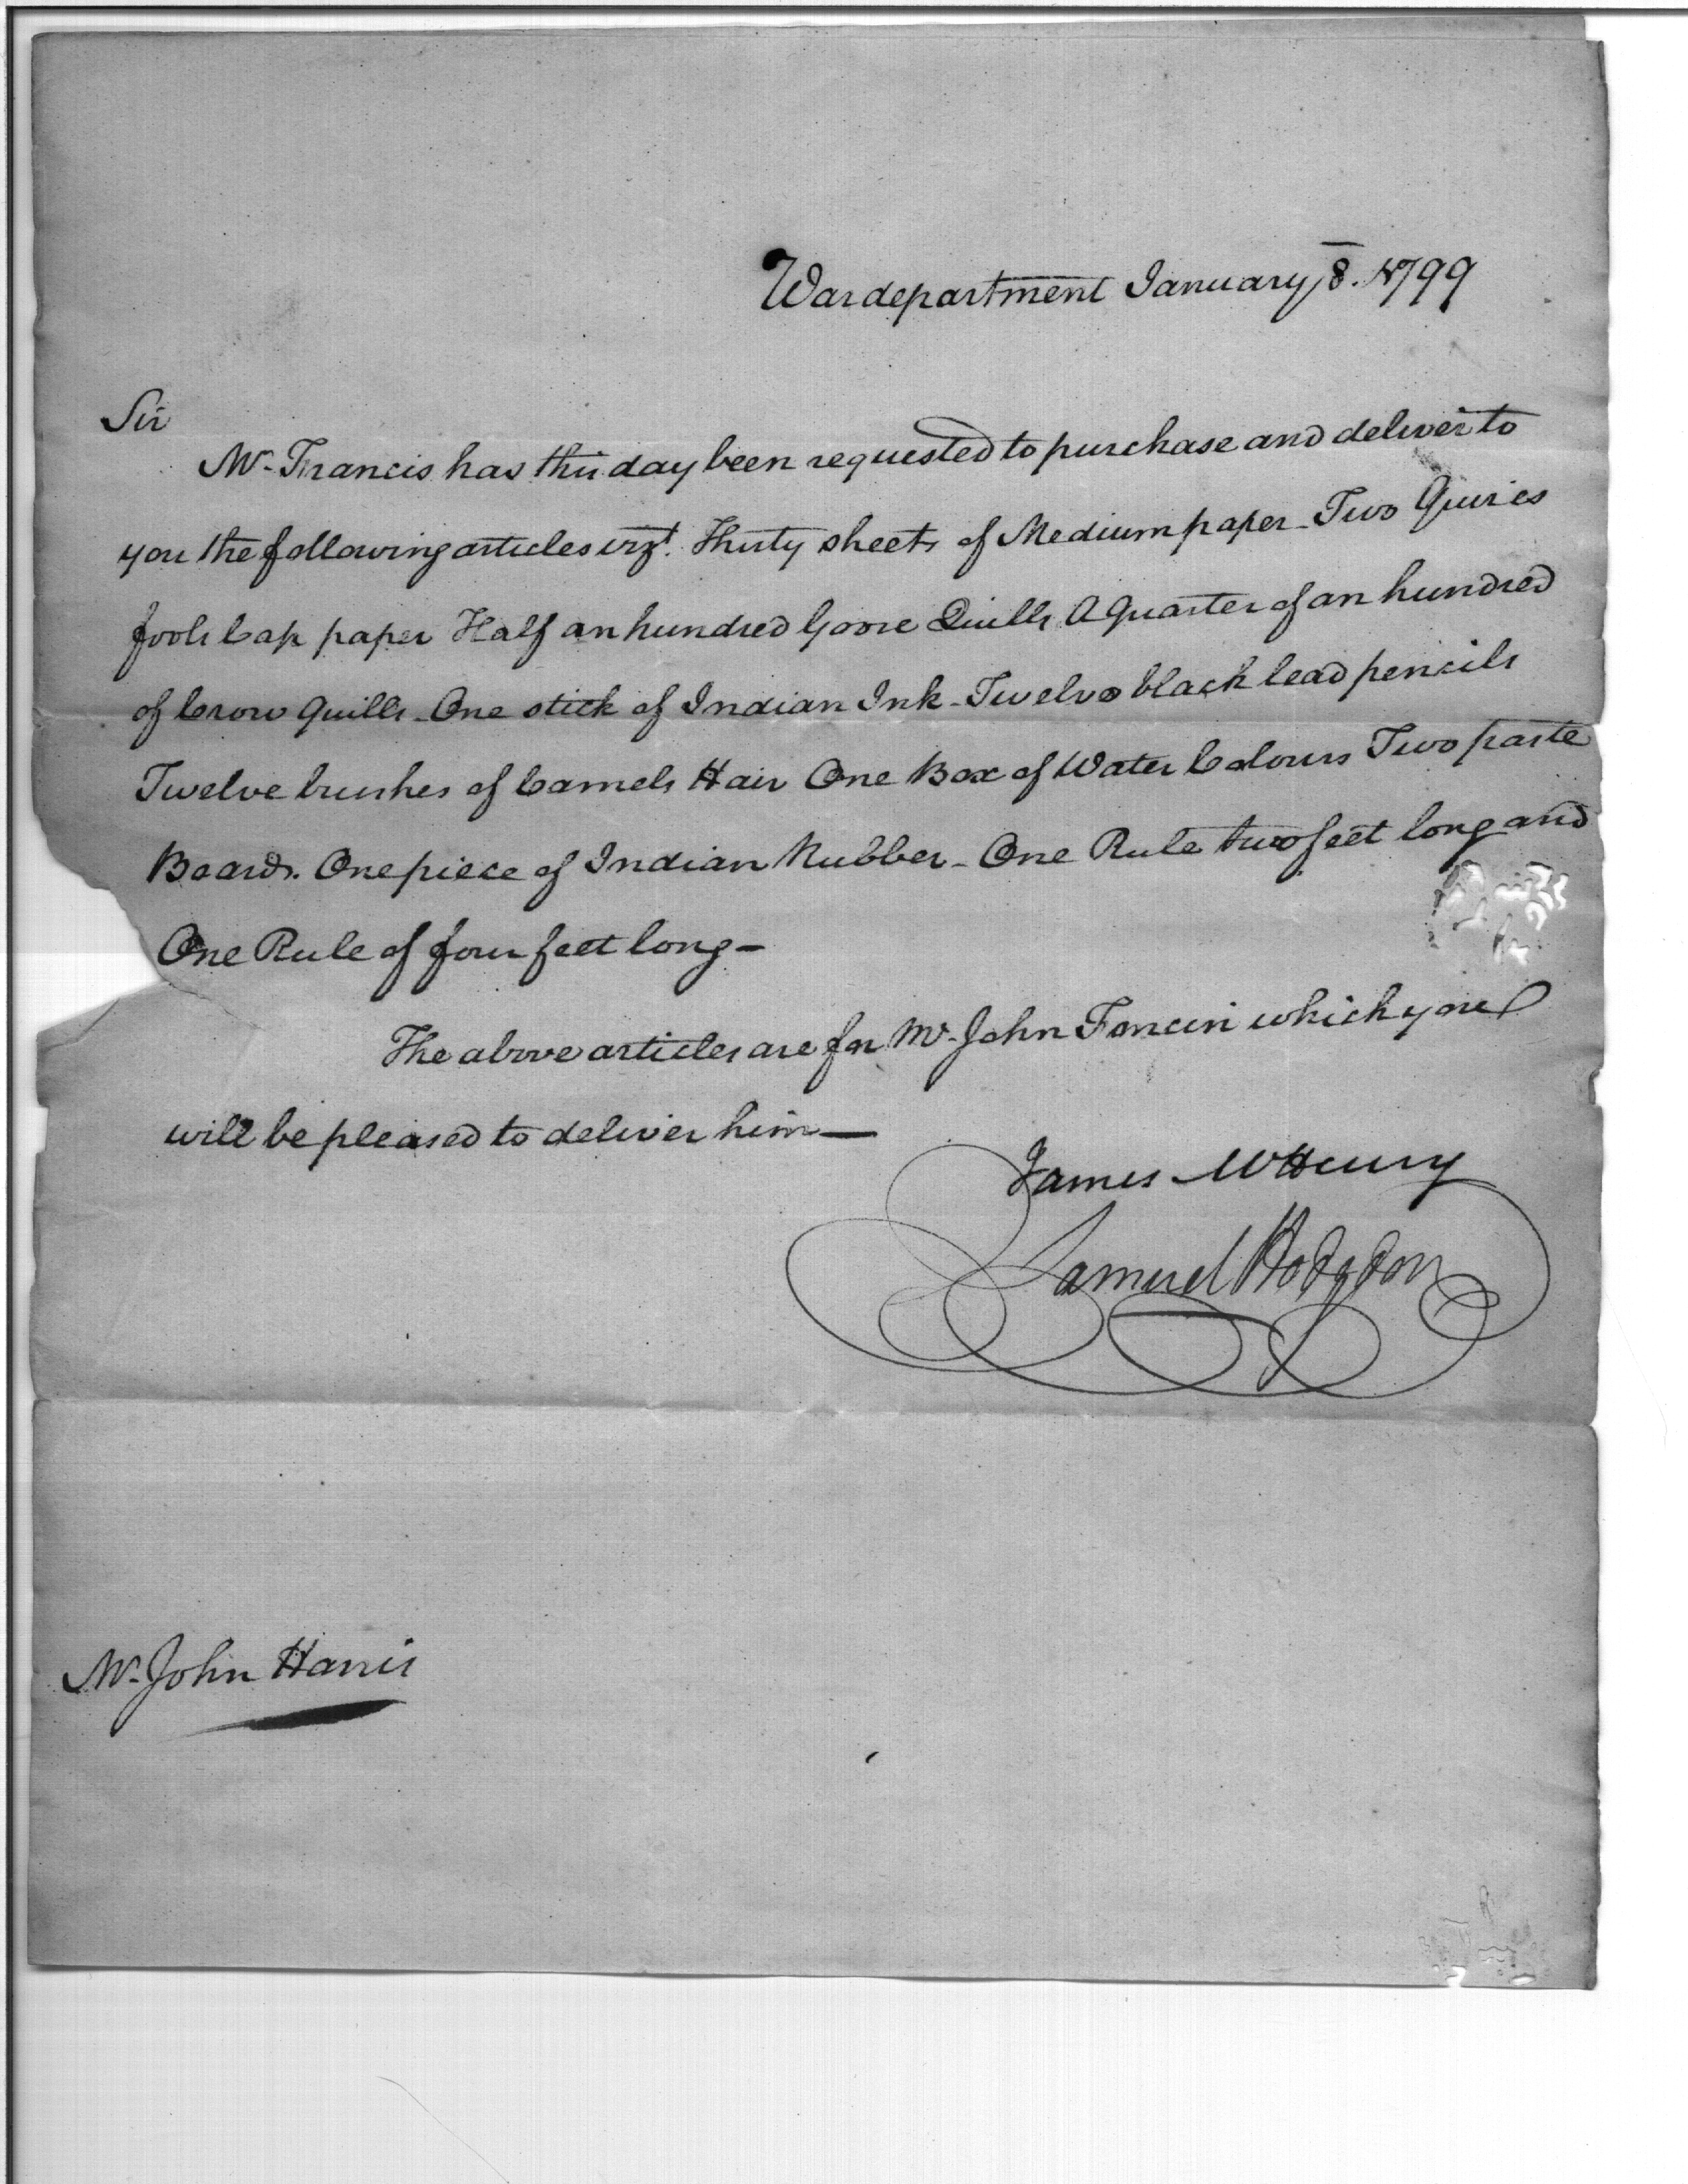 War department January 8. 1799
Sir
Mr. Francis has this day been requested to purchase and deliver to
you the following articles vizt. Thirty sheets of Medium paper - Two Quires
fools Cap paper Half an hundred Goose Quills A quarter of an hundred
of Crow quills - One stick of Indian Ink - Twelve black lead pencils
Twelve brushes of Camels Hair One Box of Water Colours Two paste
Boards. One piece of Indian Rubber - One Rule two feet long and
One Rule of four feet long -
The above articles are for Mr. John Foncin which you
will be pleased to deliver him —
James McHenry
Samuel Hodgdon
Mr. John Harris